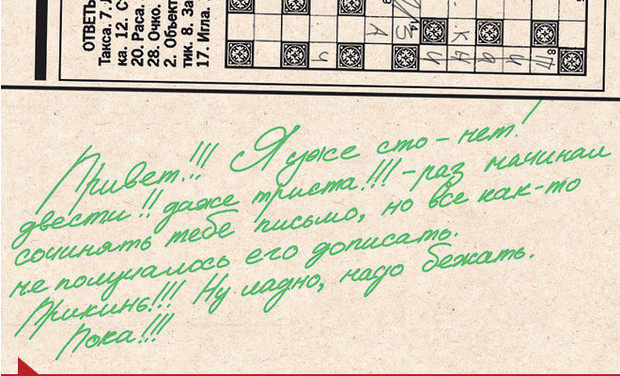 ОТВЕТЫ
Такса. 7. Л
ка. 12. С
20. Раса.
28. Очко.
2. Объект
тик. 8. За
17. Игла.
Привет!!! Я уже сто - нет!
двести!! даже триста!!! - раз начинал
сочинять тебе письмо, но все как-то
не получалось его дописать.
Прикинь!!! Ну ладно, надо бежать.
Пока!!!!